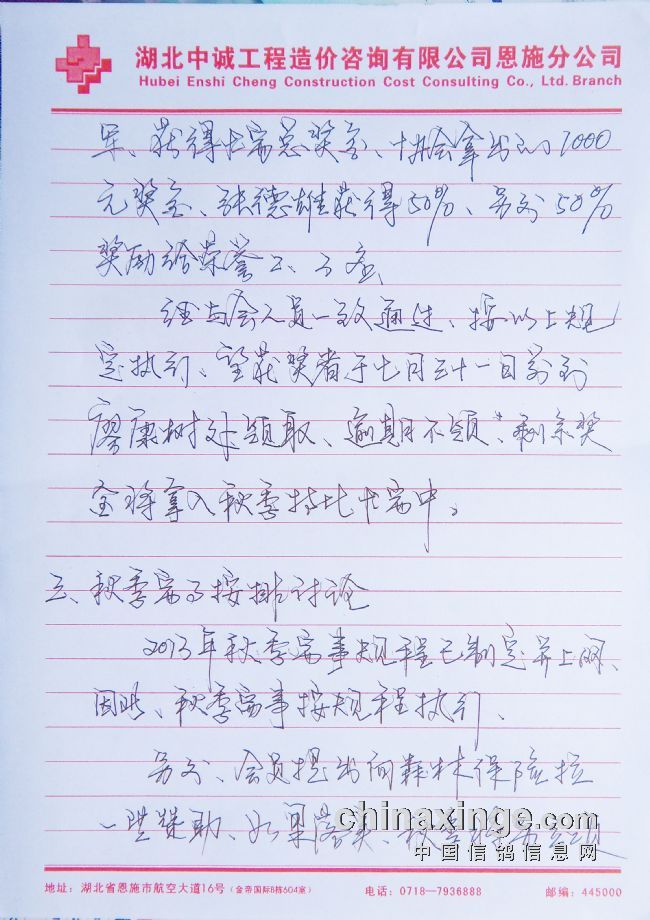 湖北中诚工程造价咨询有限公司恩施分公司
Hubei Enshi Cheng Construction Cost Consulting Co., Ltd. Branch
军、获得大赛总奖金、协会拿出的1000
元奖金、张德雄获得50%、另外50%
奖励给荣誉二、三
经与会人员一致通过、按以上规
定执行、望获奖者于七月三十一日前到
廖康树处领取、逾期不领、剩余奖
金将拿入秋季特比大赛中。
三、秋季赛事按排讨论
2013年秋季赛事规程已制定并上网、
因此、秋季赛事按规程执行、
另外、会员提出向森林保险拉
一些赞助、如果落实、秋季
chinaxinge.com
中国信鸽信息网
地址：湖北省恩施市航空大道16号（金帝国际B栋604室） 电话：0718—7936888 邮编：445000